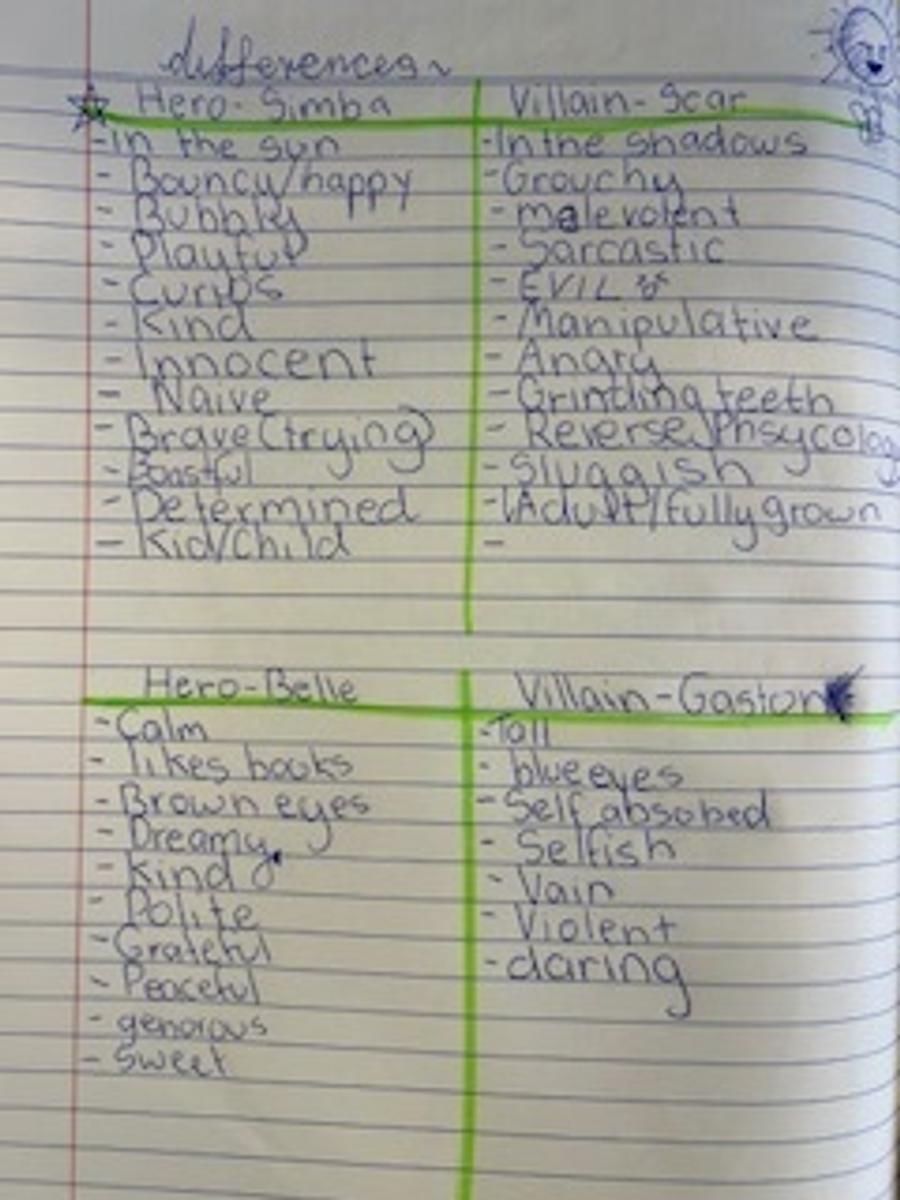 differences
Hero-Simba
-In the sun
- Bouncy/happy
- Bubbly
- Playful
- Curios
- Kind
- Innocent
- Naive
- Brave (trying)
- Boastful
- Determined
- Kid/Child
Villain-Scar
-In the shadows
-Grouchy
- malevolent
- Sarcastic
- EVIL
- Manipulative
- Angry
- Grinding teeth
- Reverse Phsycolog
- Sluggish
- Adult/fully grown
-
Hero-Belle
- Calm
- likes books
- Brown eyes
- Dreamy
- Kind
- Polite
- Grateful
- Peaceful
- generous
- Sweet
Villain-Gaston
-Tall
- blue eyes
- Self absobed
- Selfish
- Vain
- Violent
- daring